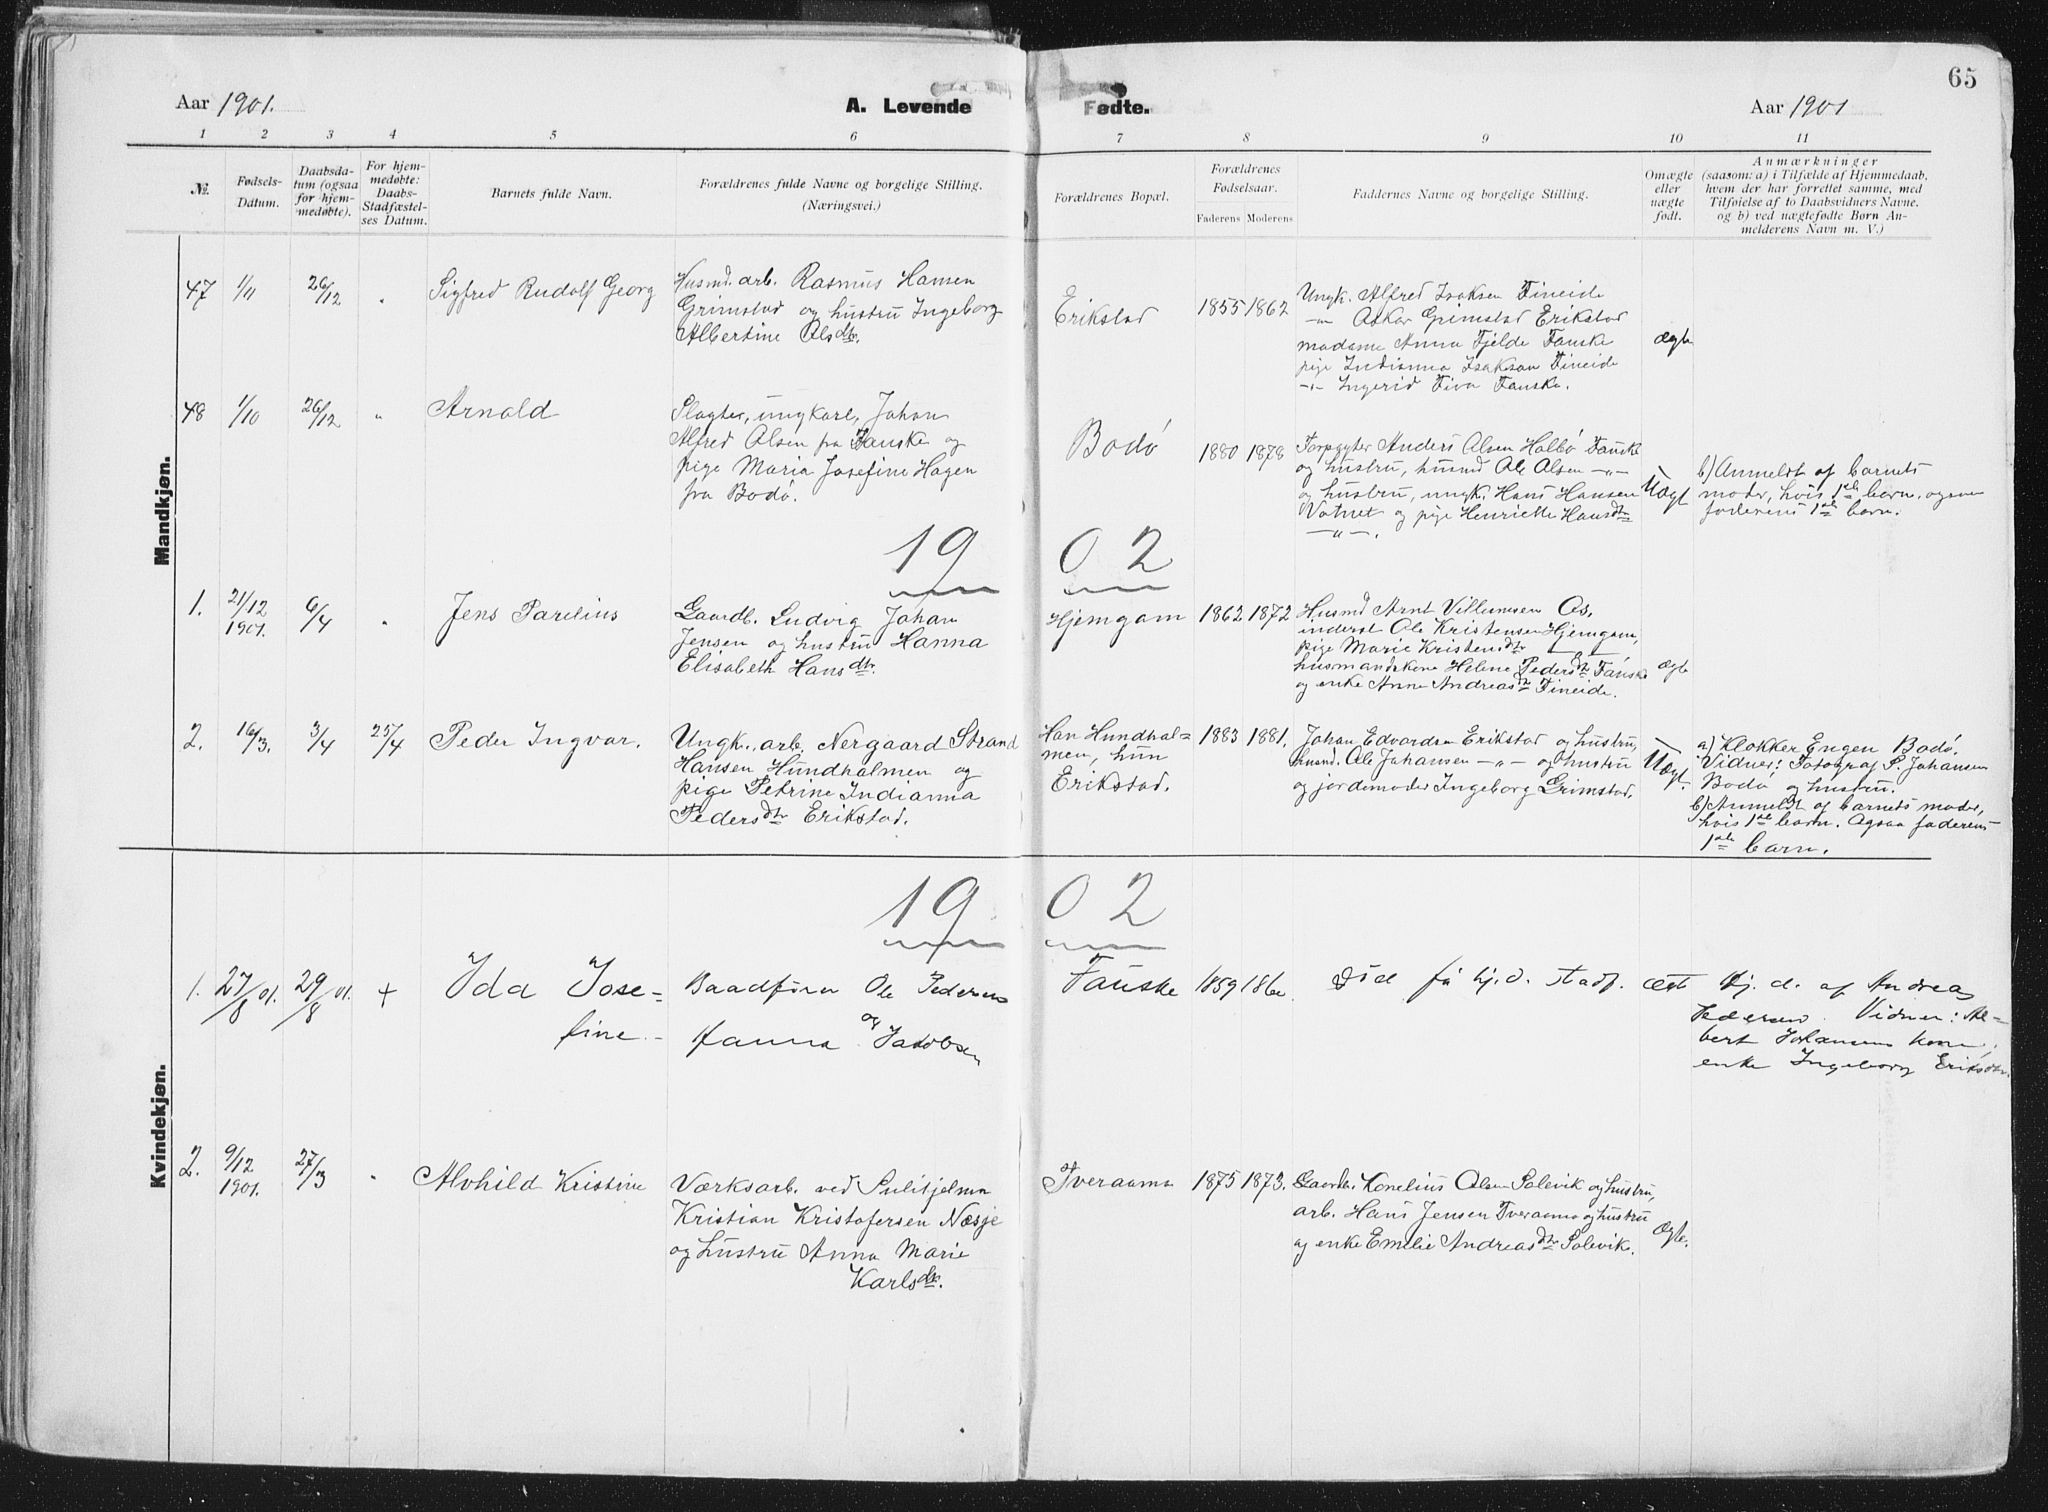 65
Aar 1901.
A. Levende Fødte.
Aar 1901
1 2 3 4 5 6 7 8 9 10 11
№
Fødsels-
Datum.
Daabsda-
tum (ogsaa
for hjem-
medøbte).
For hjem-
medøbte:
Daabs-
Stadfæstel-
ses Datum.
Barnets fulde Navn.
Forældrenes fulde Navne og borgelige Stilling.
(Næringsvei.)
Forældrenes Bopæl.
Forældrenes
Fødselsaar.
Faderens Moderens
Faddernes Navne og borgelige Stilling.
Omægte
eller
uægte
født.
Anmærkninger
(saasom: a) i Tilfælde af Hjemmedaab,
hvem der har forrettet samme, med
Tilføielse af to Daabsvidners Navne.
og b) ved uægtefødte Børn An-
melderens Navn m. V.)
Mandkjøn.
47 1/11 26/12 " Sigfred Rudolf Georg
Husmd. arb. Rasmus Hansen
Grimstad og hustru Ingeborg
Albertine Olsdtr.
Erikstad
1855 1862
Ungk. Alfred Isaksen Fineide
—"— Oskar Grimstad Erikstad
madame Anna Fjelde Fauske
pige Indianna Isaksen Fineide
—"— Ingerid Fauske.
ægte
48 1/10 26/12 " Arnold
Slagter, ungkarl, Johan
Alfred Olsen fra Fauske og
pige Maria Josefine Hagen
fra Bodø.
Bodø
1880 1878
Forpagter Anders Olsen Fauske
og hustru, husmd Ole Olsen —"—
og hustru, ungk. Hans Hansen
Vatnet og pige Henriette Hansdtr
—"—.
Uægt
b) Anmeldt af barnets
moder, hvis 1ste barn, ogsaa
faderens 1ste barn.
1902
1. 21/12 1901. 6/4 " Jens Parelius
Gaardb. Ludvig Johan
Jensen og hustru Hanna
Elisabeth Hansdtr.
Hjemgam
1862 1872
Husmd Arnt Villumsen Os,
inderst Ole Kristensen Hjemgam,
pige Marie Kristensdtr —"—
husmandskone Helene Pedersdtr Fauske
og enke Anne Andreasdtr Fineide.
ægte
2. 16/3. 3/4 25/4 Peder Ingvar.
Ungk., arb. Nergaard Strand
Hansen Hundholmen og
pige Petrine Indianna
Pedersdtr Erikstad.
Han Hundhol=
men, hun
Erikstad.
1883 1881.
Johan Edvardsen Erikstad og hustru,
husmd. Ole Johansen —"— og hustru
og jordemoder Ingeborg Grimstad.
Uægt.
a) Klokker Engen Bodø.
Vidner: Fotograf S. Johansen
Bodø og hustru.
b) Anmeldt af barnets moder,
hvis 1ste barn. Ogsaa faderens
1ste barn.
Kvindekjøn.
1902
1. 27/8 01. 29/8 01. + Ida Jose=
fine.
Baadfører Ole Pedersen
og
Hanna Jakobsen
Fauske
1859 186
Død før hj.d. stadf.
Hj. d. af Andreas
Pedersen. Vidner: Al=
bert Johansens kone,
enke Ingeborg Eriksdtr.
2. 9/12 1901. 27/3 " Alvhild Kristine
Værksarb. ved Sulitjelma
Kristian Kristofersen Næsje
og hustru Anna Marie
Karlsdtr.
Tveraama
1875 1873.
Gaardb. Kornelius Olsen Solevik og hustru,
arb. Hans Jensen Tveraamo og hustru
og enke Emilie Andreasdtr Solevik.
Ægte.